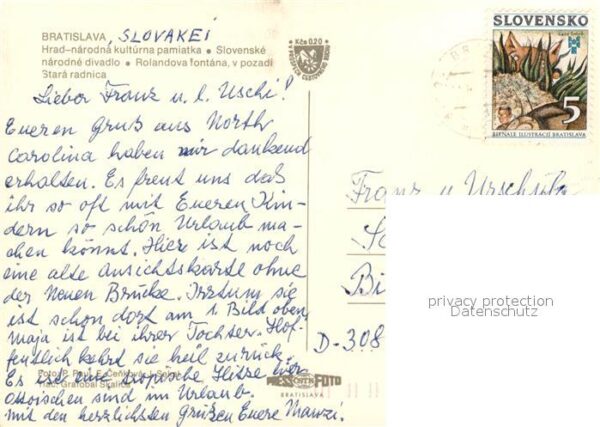 BRATISLAVA, SLOVAKEI
Hrad–národná kultúrna pamiatka • Slovenské
národné divadlo • Rolandova fontána, v pozadí
Stará radnica
Kčs 0,20
SLOVENSKO
5
BIENÁLE ILUSTRÁCIÍ BRATISLAVA
Lieber Franz u. l. Uschi!
Eueren Gruß aus North
Carolina haben wir dankend
erhalten. Es freut uns daß
ihr so oft mit Eueren Kin-
dern so schön Urlaub ma-
chen könnt. Hier ist noch
eine alte Ansichtskarte ohne
der Neuen Brücke. Irrtum sie
ist schon dort am 1. Bild oben
Maja ist bei ihrer Tochter. Hof-
fentlich kehrt sie heil zurück.
Es ist eine tropische Hitze hier
sind im Urlaub.
Mit den herzlichsten Grüßen Euere
Franz u. Urschula
Bi
D-308
privacy protection
Datenschutz
PRESSFOTO
BRATISLAVA